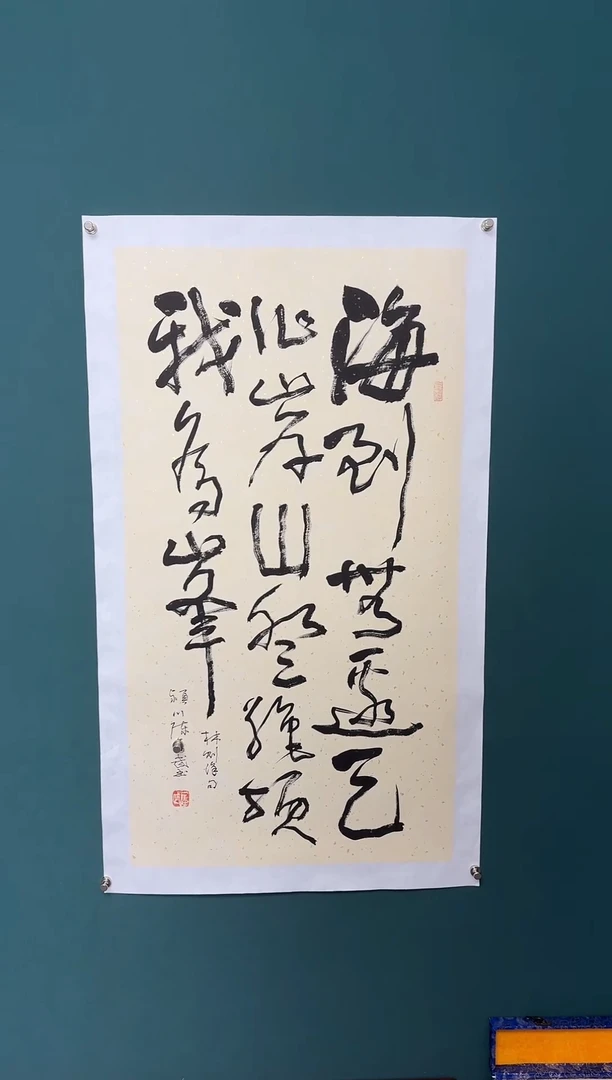 海到無邊天
作岸山登絕頂
我為峰
林則徐句
潁川陳